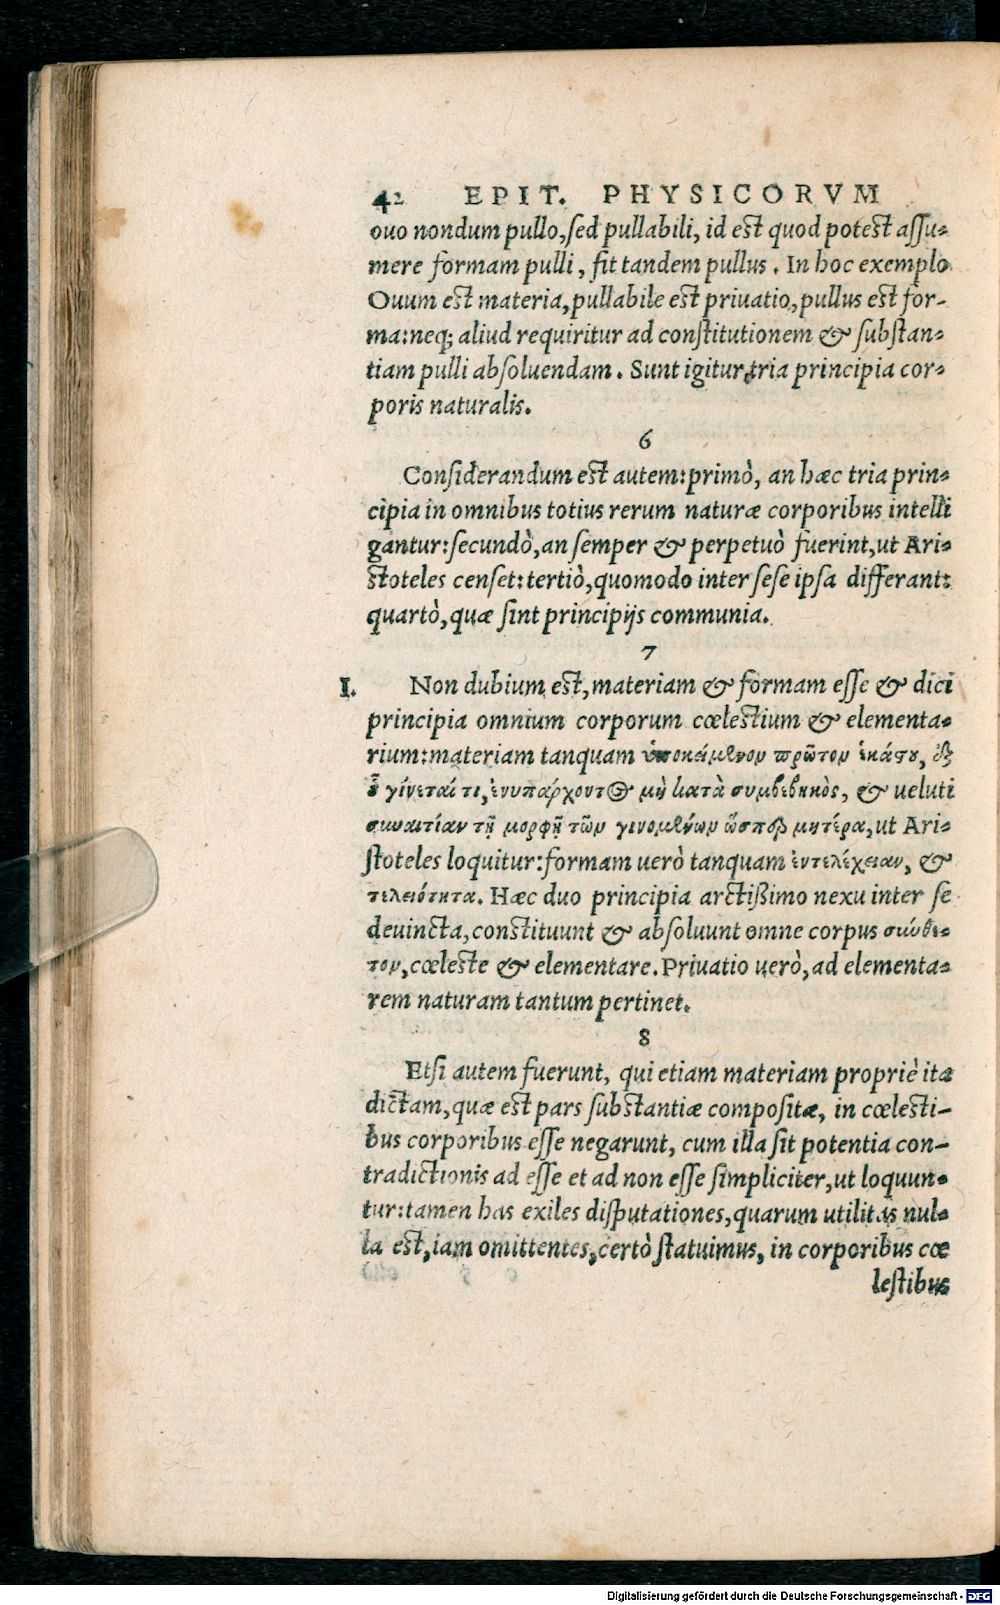 42 EPIT. PHYSICORVM
ouo nondum pullo, sed pullabili, id est quod potest assu-
mere formam pulli, fit tandem pullus. In hoc exemplo
Ouum est materia, pullabile est priuatio, pullus est for-
ma: neq; aliud requiritur ad constitutionem & substan-
tiam pulli absoluendam. Sunt igitur tria principia cor-
poris naturalis.
6
Considerandum est autem: primò, an hæc tria prin-
cipia in omnibus totius rerum naturæ corporibus intelli
gantur: secundò, an semper & perpetuò fuerint, ut Ari-
stoteles censet: tertiò, quomodo inter sese ipsa differant:
quartò, quæ sint principijs communia.
7
I. Non dubium est, materiam & formam esse & dici
principia omnium corporum cœlestium & elementa-
rium: materiam tanquam ὑποκείμενον πρῶτον ἑκάστου, ἐξ
οὗ γίνεταί τι, ἐνυπάρχοντος μὴ κατὰ συμβεβηκὸς, & ueluti
συναιτίαν τῇ μορφῇ τῶν γινομένων ὥσπερ μητέρα, ut Ari-
stoteles loquitur: formam uerò tanquam ἐντελέχειαν, &
τελειότητα. Hæc duo principia arctißimo nexu inter se
deuincta, constituunt & absoluunt omne corpus σύνθε-
τον, cœleste & elementare. Priuatio uerò, ad elementa-
rem naturam tantum pertinet.
8
Etsi autem fuerunt, qui etiam materiam propriè ita
dictam, quæ est pars substantiæ compositæ, in cœlesti-
bus corporibus esse negarunt, cum illa sit potentia con-
tradictionis ad esse et ad non esse simpliciter, ut loquun-
tur: tamen has exiles disputationes, quarum utilitas nul-
la est, iam omittentes, certò statuimus, in corporibus cœ
lestibus
Digitalisierung gefördert durch die Deutsche Forschungsgemeinschaft - DFG